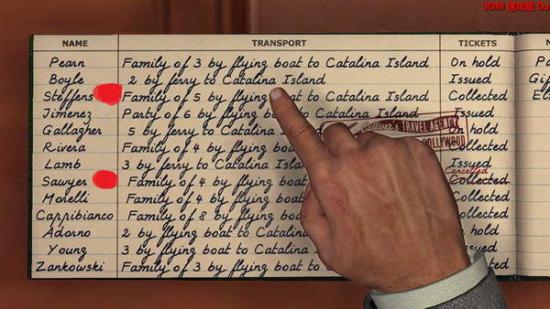 3DM
NAME TRANSPORT TICKETS
Pearn Family of 3 by flying boat to Catalina Island On hold
Boyle 2 by ferry to Catalina Island Issued
Steffens Family of 5 by flying boat to Catalina Island Collected
Jimenez Party of 6 by flying boat to Catalina Island Collected
Gallagher 5 by ferry to Catalina On hold
Rivera Family of 4 by flying Collected
TRAVEL AGENCY
HOLLYWOOD
Lamb 3 by ferry to Catalina Isl Issued
Cancelled
Sawyer Family of 4 by flying Collected
Morelli Family of 4 by flying Collected
Cappibianco Family of 8 by flying Collected
Adorno 2 by flying boat to Cata Issued
Young 3 by flying boat to Catalina Issued
Zankowski Family of 3 by flying boat to Catalina Island Collected